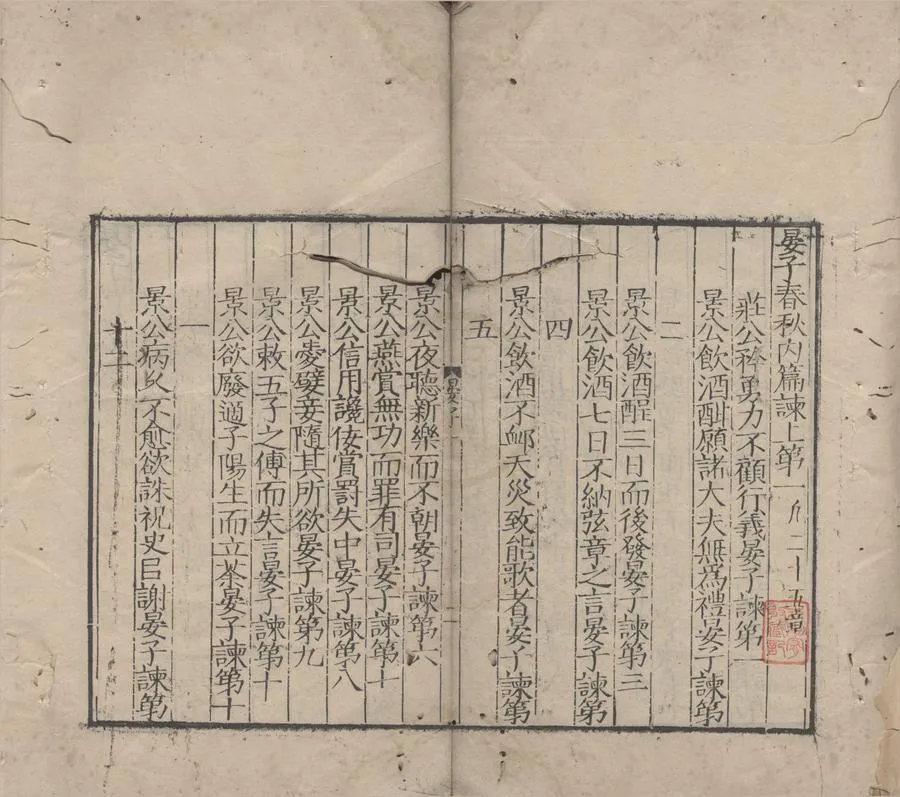 晏子春秋內篇諫上第一凡二十五章
莊公矜勇力不顧行義晏子諫第一
景公飲酒酣願諸大夫無爲禮晏子諫第
二
景公飲酒酲三日而後發晏子諫第三
景公飲酒七日不納弦章之言晏子諫第
四
景公飲酒不卹天災致能歌者晏子諫第
五
晏子
景公夜聽新樂而不朝晏子諫第六
景公燕賞無功而罪有司晏子諫第十
景公信用讒佞賞罰失中晏子諫第八
景公愛嬖妾隨其所欲晏子諫第九
景公敕五子之傅而失言晏子諫第十
景公欲廢適子陽生而立荼晏子諫第十
一
景公病久不愈欲誅祝史以謝晏子諫第
十二